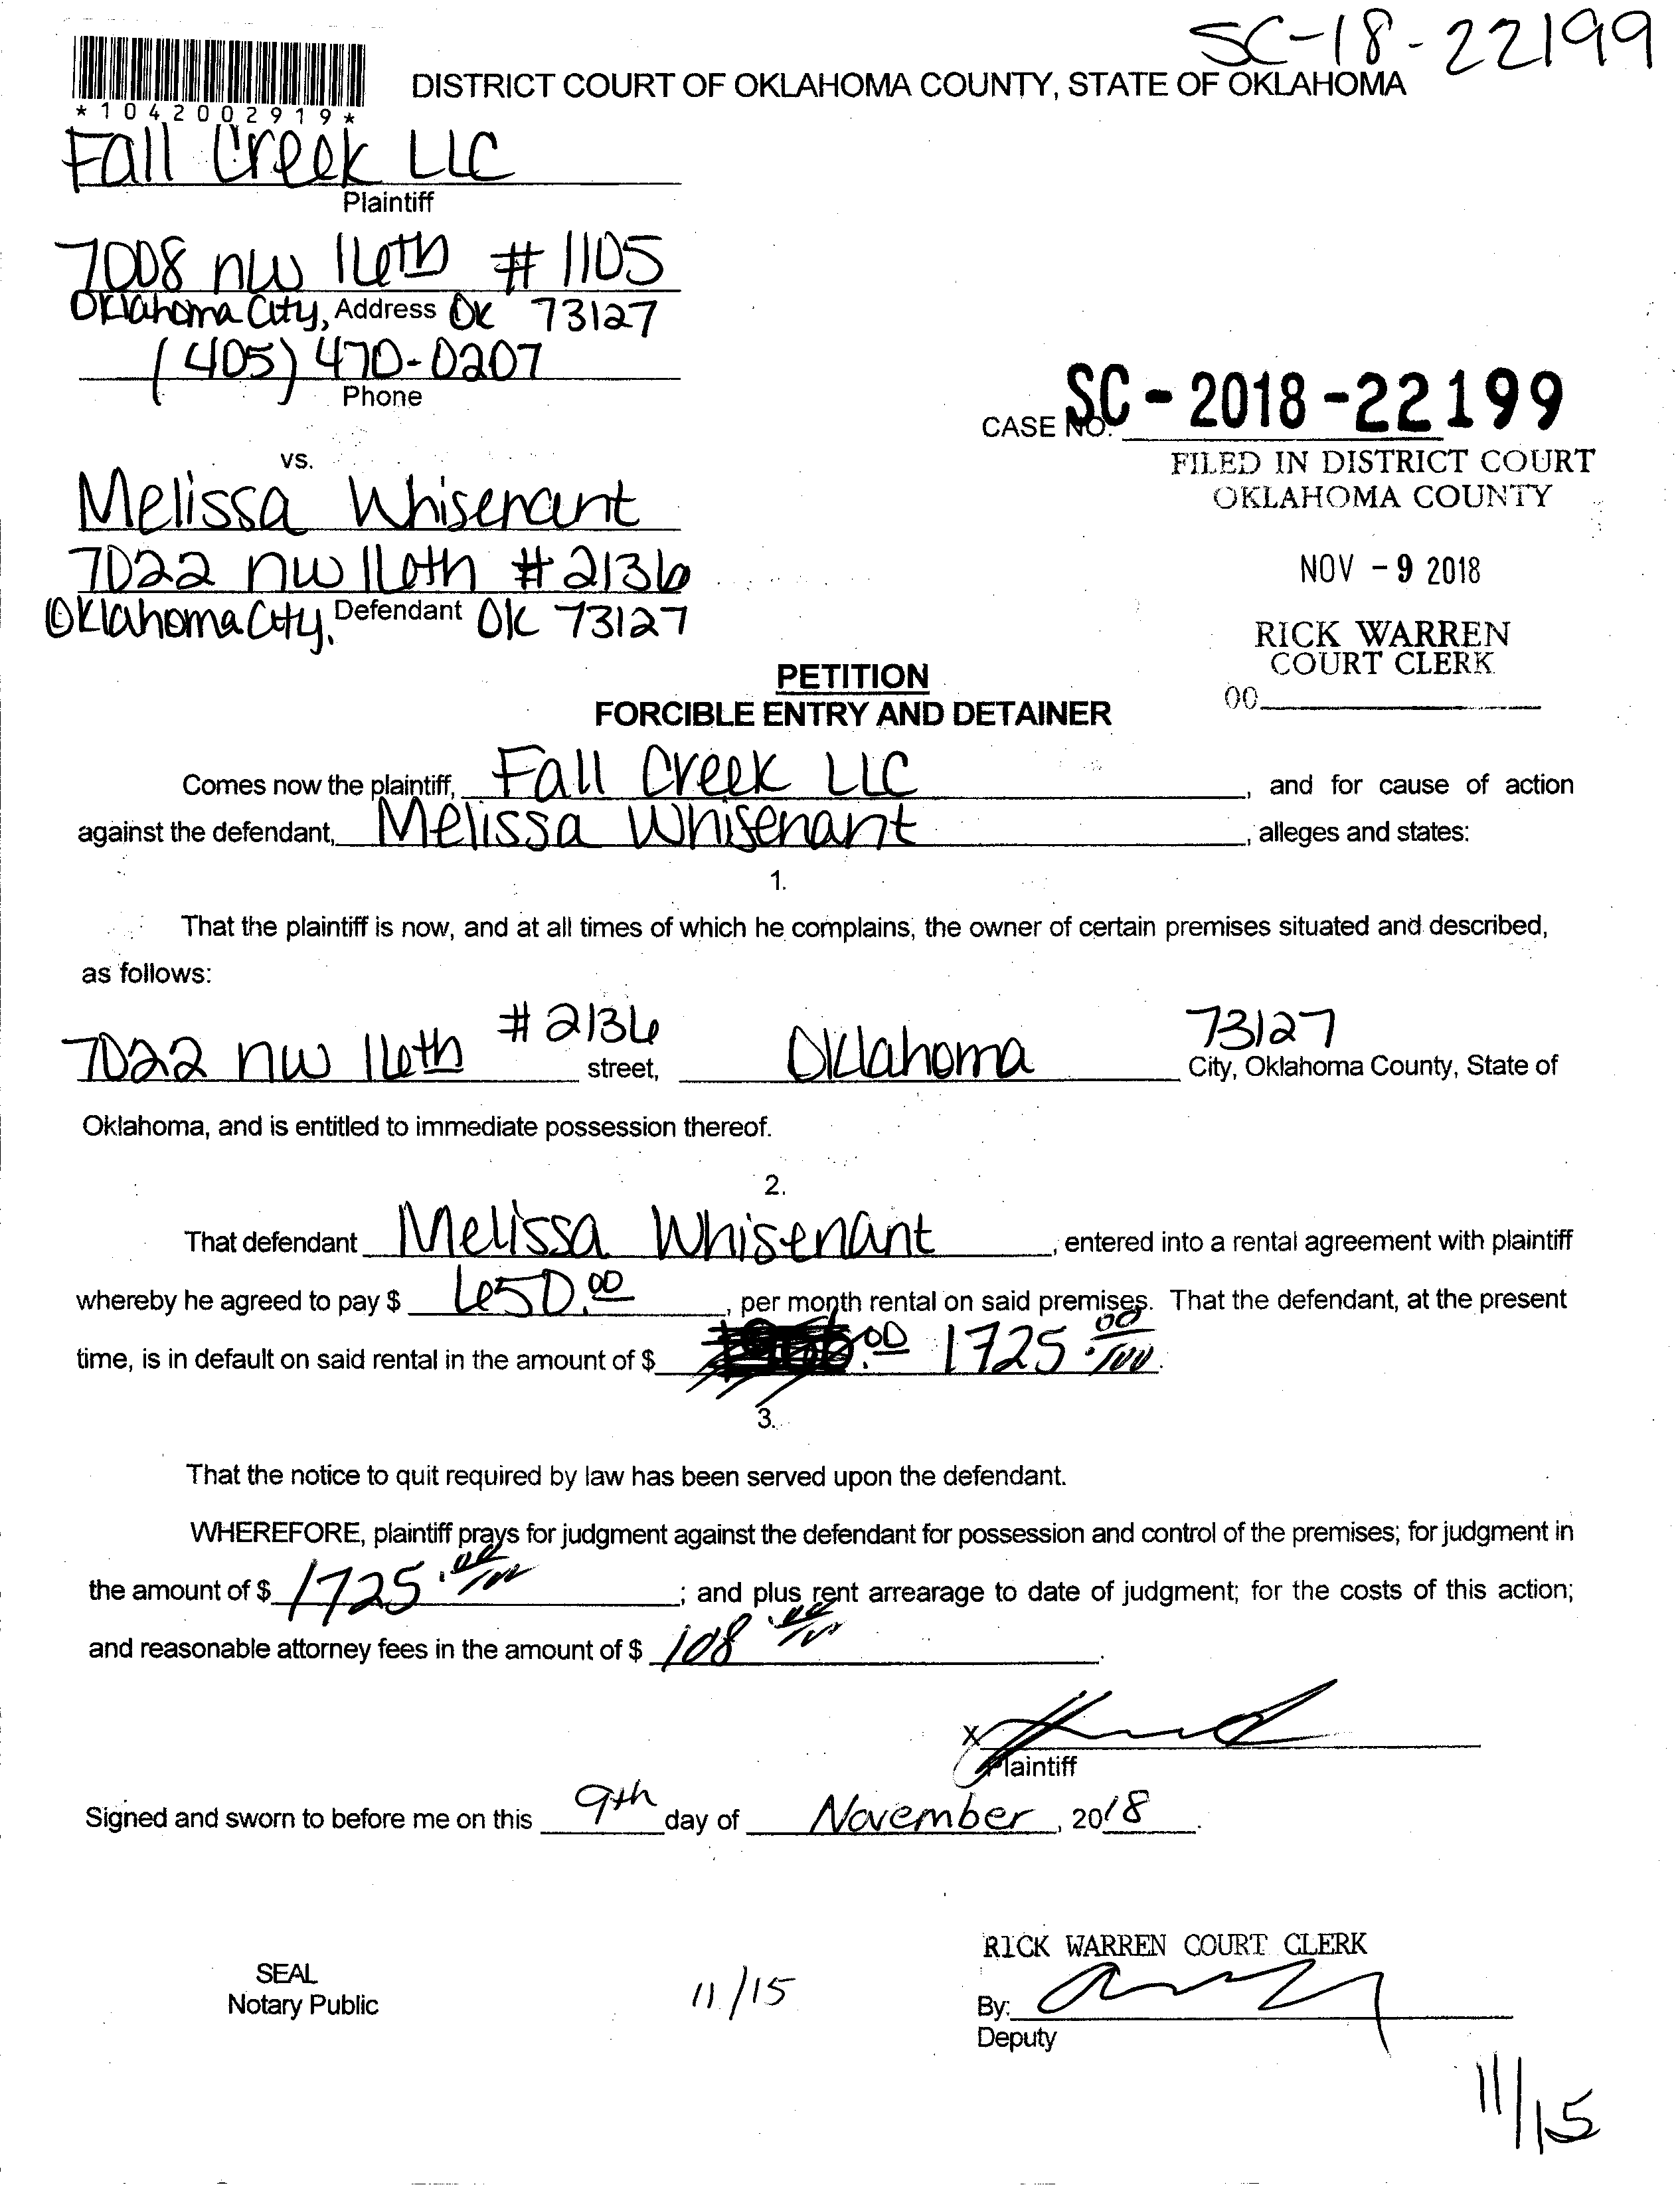 SC-18-22199
DISTRICT COURT OF OKLAHOMA COUNTY, STATE OF OKLAHOMA
*1042002919*
Fall Creek LLC
Plaintiff
7008 NW 16th # 1105
Oklahoma City, Address OK 73127
(405) 470-0207
Phone
CASE NO. SC-2018-22199
FILED IN DISTRICT COURT
OKLAHOMA COUNTY
vs.
Melissa Whisenant
7022 NW 16th # 2136
Oklahoma City, Defendant OK 73127
NOV - 9 2018
RICK WARREN
COURT CLERK
00
PETITION
FORCIBLE ENTRY AND DETAINER
Comes now the plaintiff, Fall Creek LLC, and for cause of action
against the defendant, Melissa Whisenant, alleges and states:
1.
That the plaintiff is now, and at all times of which he complains, the owner of certain premises situated and described,
as follows:
7022 NW 16th #2136 street, Oklahoma 73127 City, Oklahoma County, State of
Oklahoma, and is entitled to immediate possession thereof.
2.
That defendant Melissa Whisenant, entered into a rental agreement with plaintiff
whereby he agreed to pay $ 650.00, per month rental on said premises. That the defendant, at the present
time, is in default on said rental in the amount of $ .00 1725.00/100.
3.
That the notice to quit required by law has been served upon the defendant.
WHEREFORE, plaintiff prays for judgment against the defendant for possession and control of the premises; for judgment in
the amount of $ 1725.00/100; and plus rent arrearage to date of judgment; for the costs of this action;
and reasonable attorney fees in the amount of $ 108.00/100.
X
Plaintiff
Signed and sworn to before me on this 9th day of November, 2018.
RICK WARREN COURT CLERK
SEAL
Notary Public
11/15
By:
Deputy
11/15